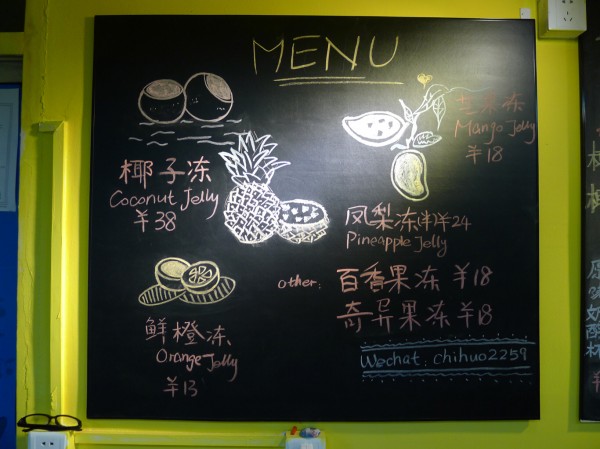 MENU
椰子冻
Coconut Jelly
¥38
芒果冻
Mango Jelly
¥18
凤梨冻(半)¥24
Pineapple Jelly
other: 百香果冻 ¥18
奇异果冻 ¥18
鲜橙冻
Orange Jelly
¥13
Wechat: chihuo2259